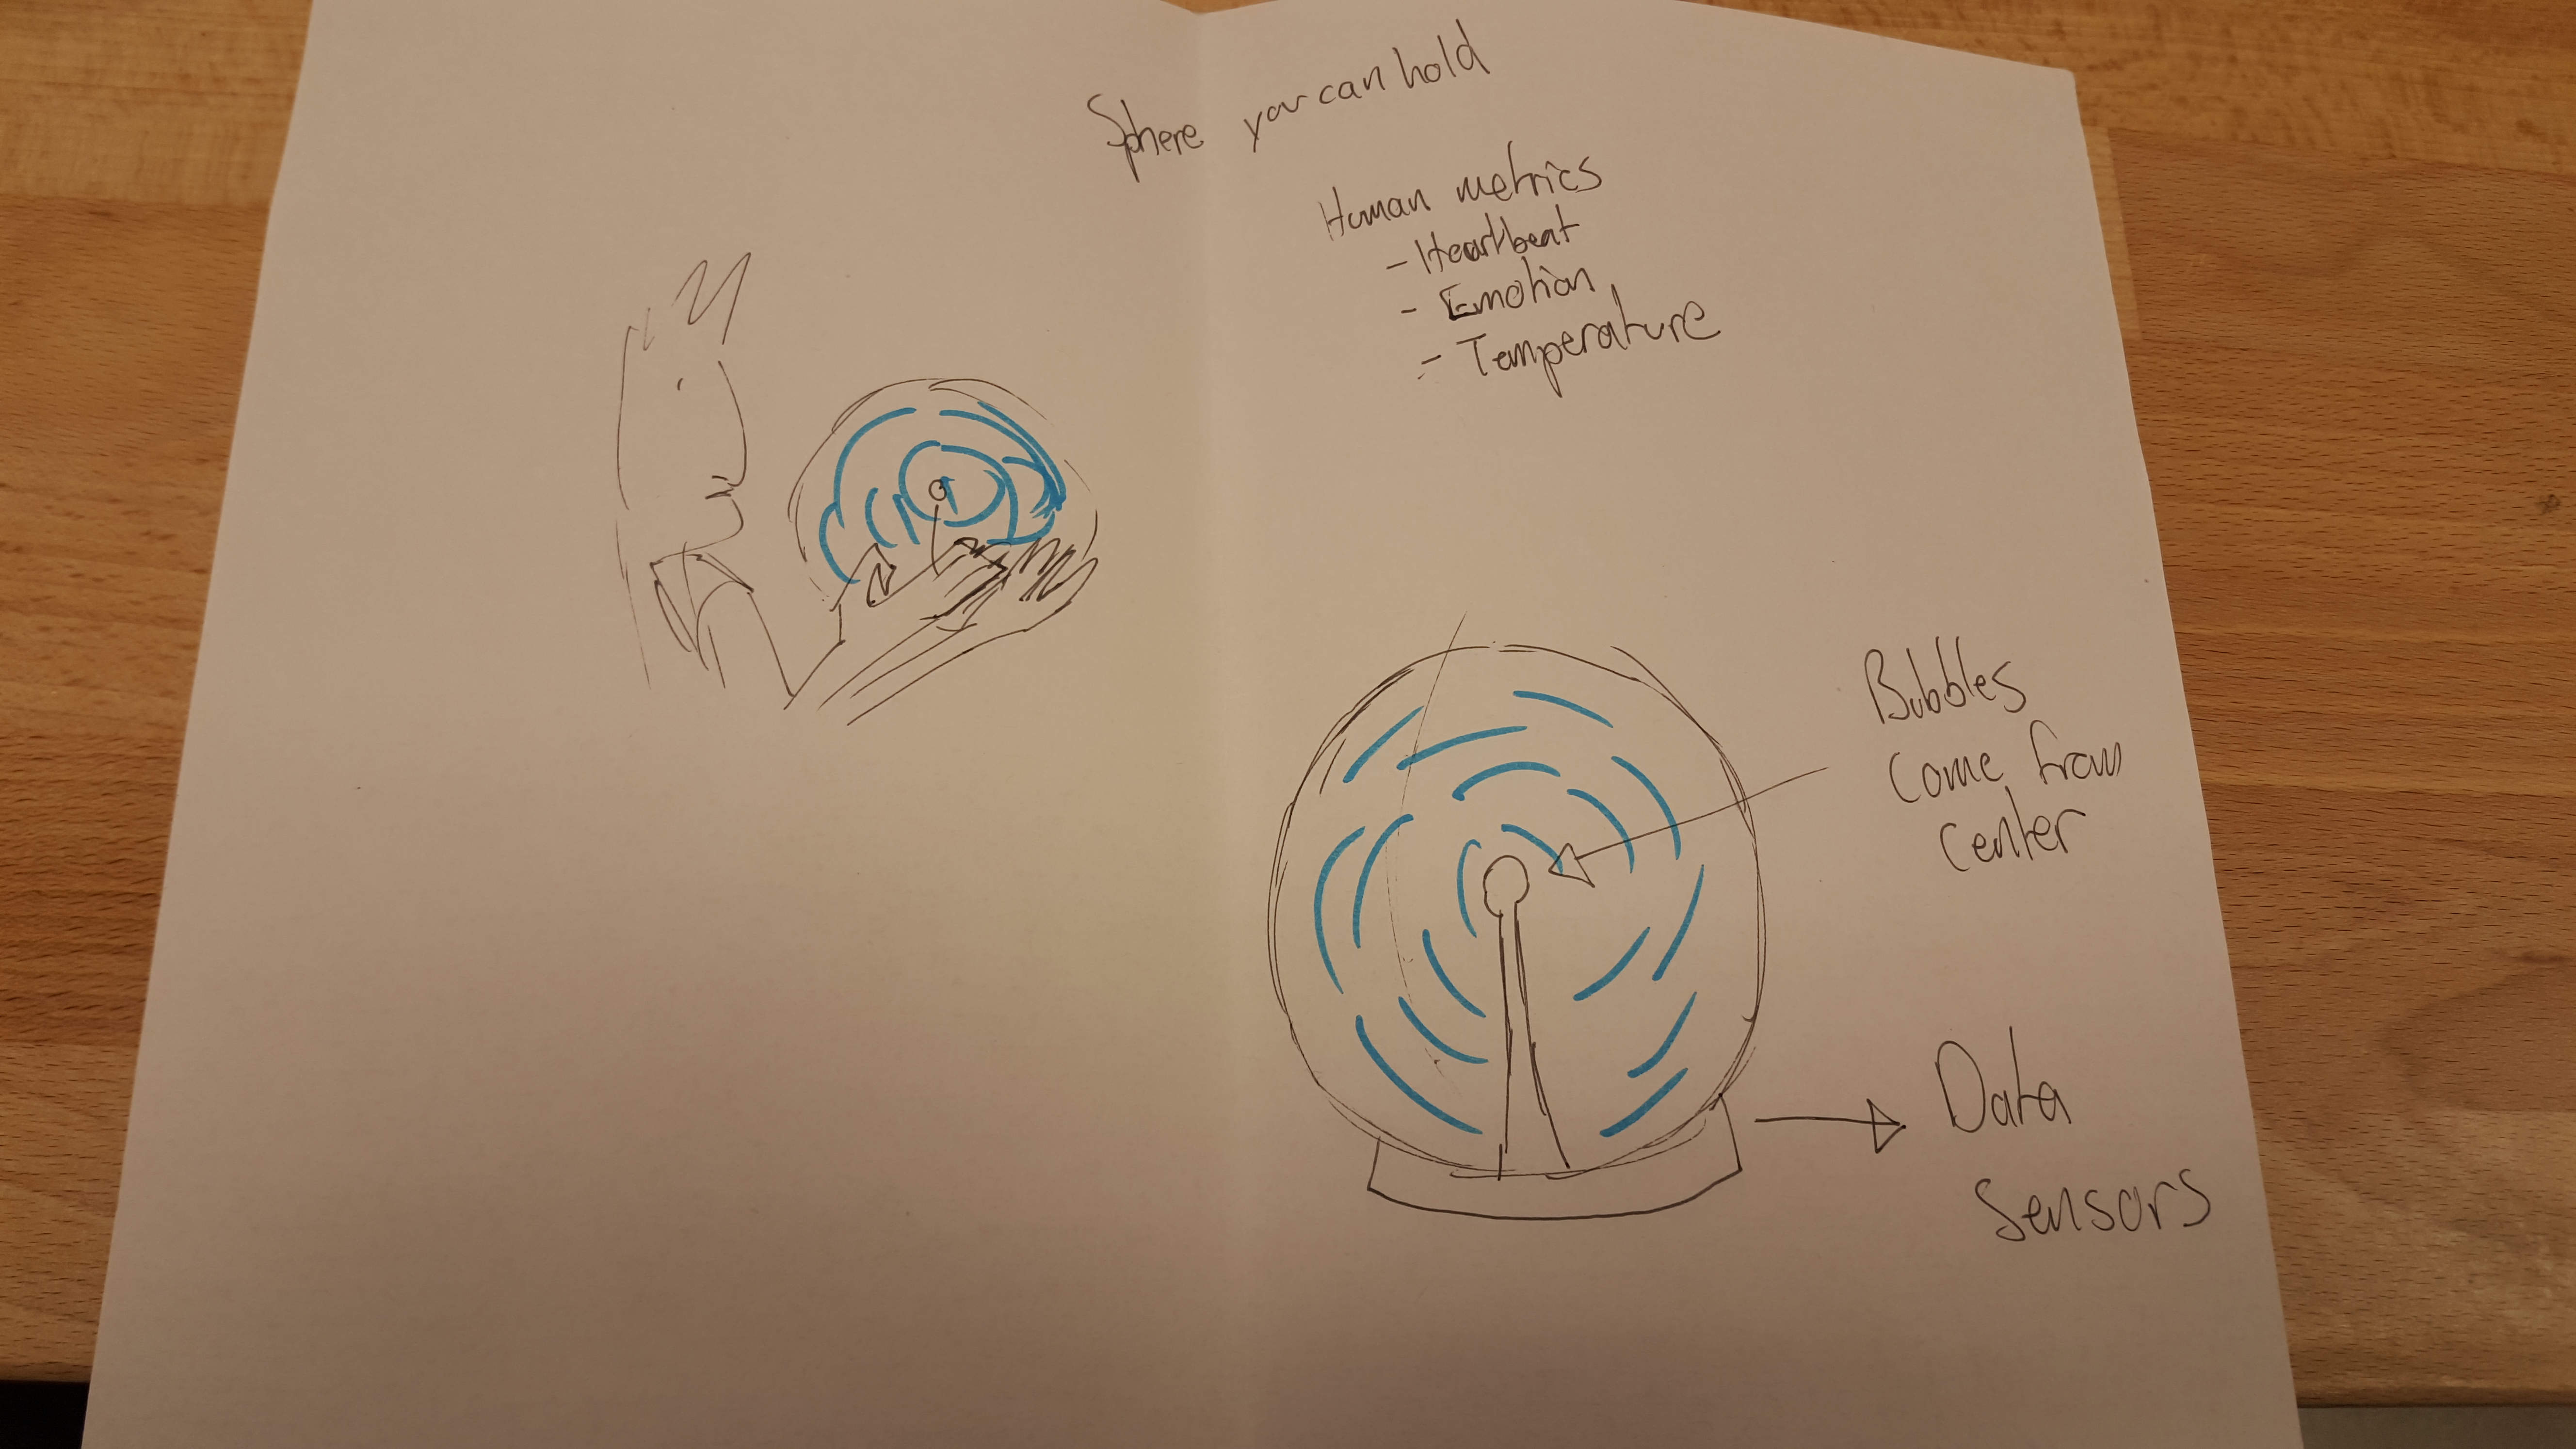 Sphere you can hold
Human metrics
- Heartbeat
- Emotion
- Temperature
Bubbles
Come from
Center
Data
Sensors